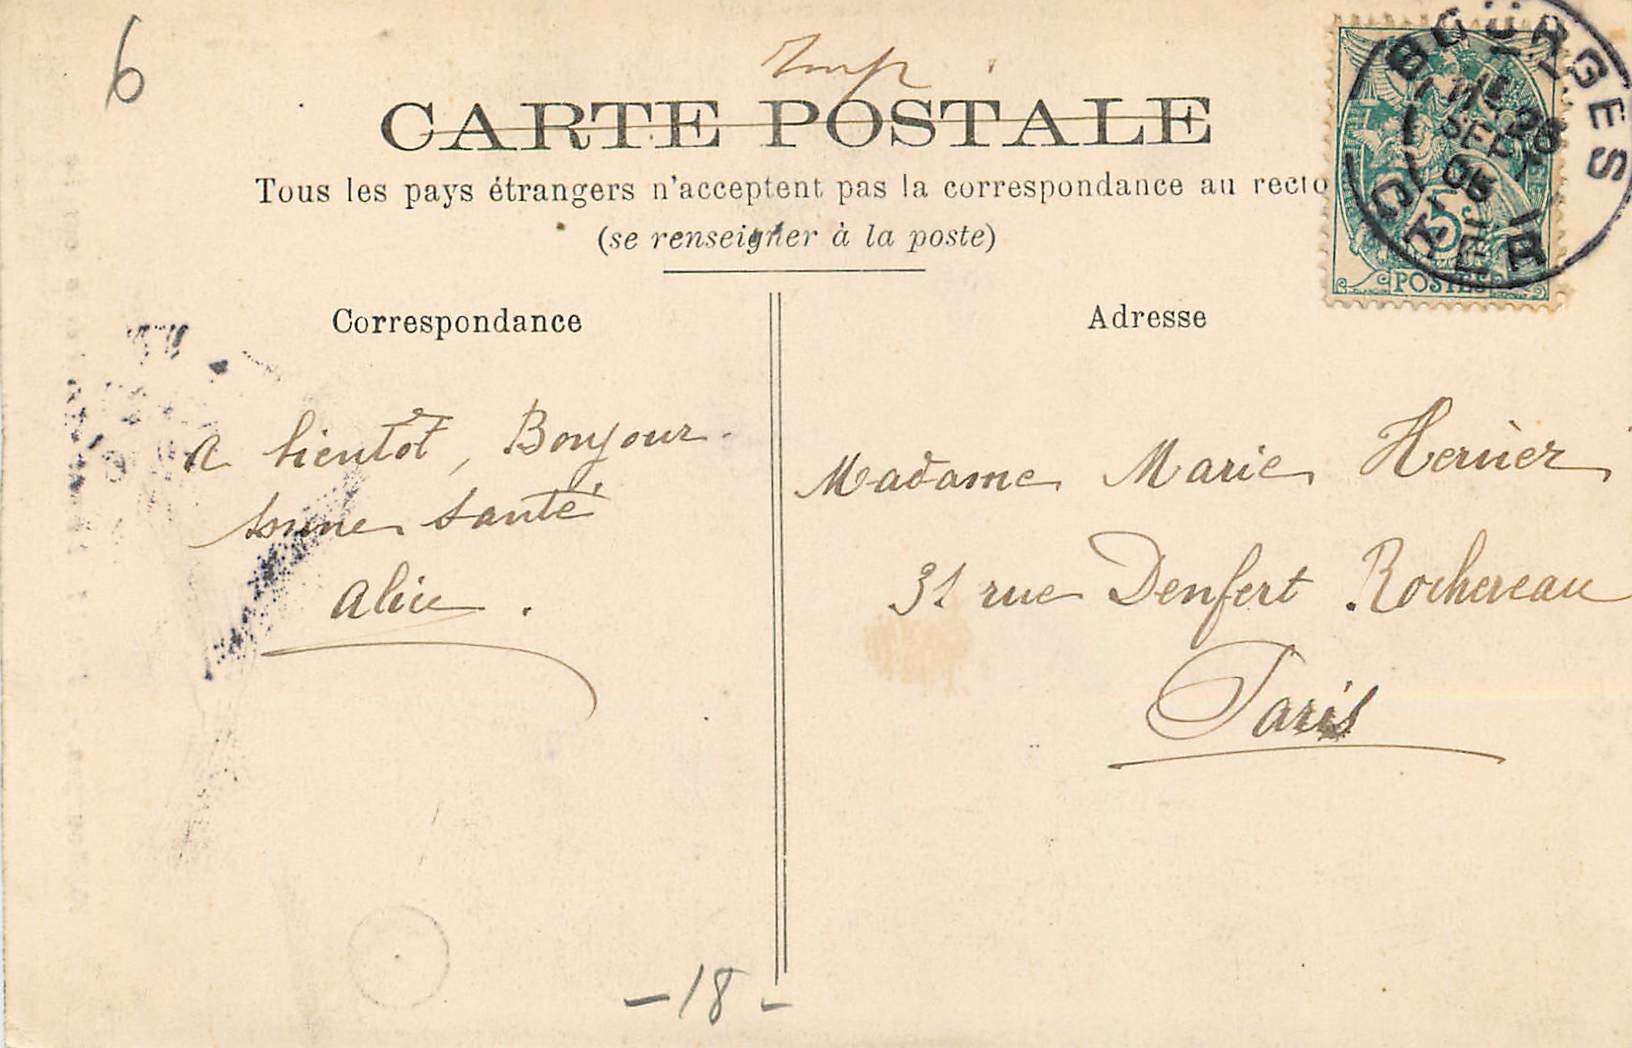 6
Imp
CARTE POSTALE
Tous les pays étrangers n'acceptent pas la correspondance au recto
(se renseigner à la poste)
BOURGES
28
SEPT
05
CHER
5
POSTES
Correspondance
Adresse
A bientot, Bonjour
bonne santé
Alice.
Madame Marie
31 rue Denfert Rochereau
Paris
-18-